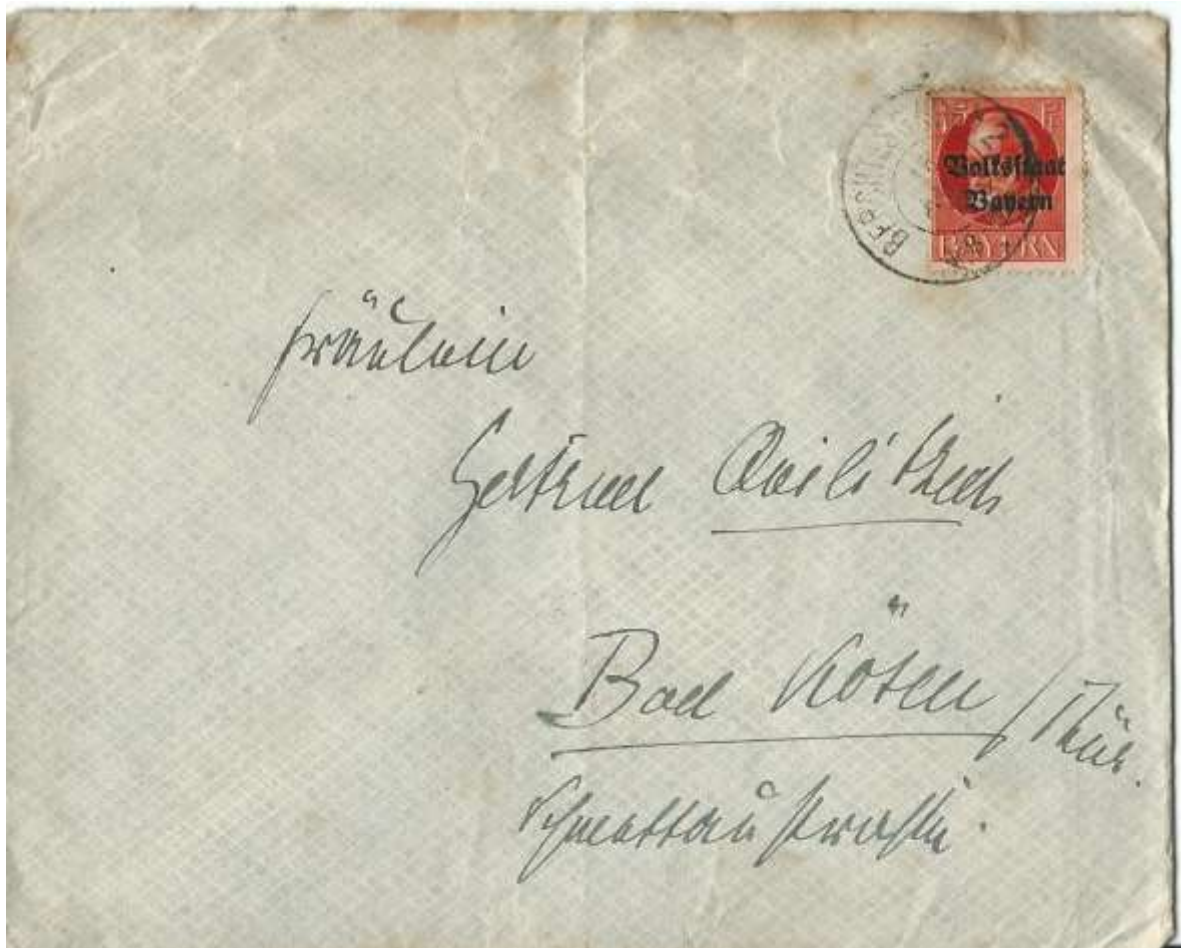 Volksstaat
Bayern
BAYERN
Fräulein
Gertrud
Bad Kösen / Thür.
Schmettaustraße.